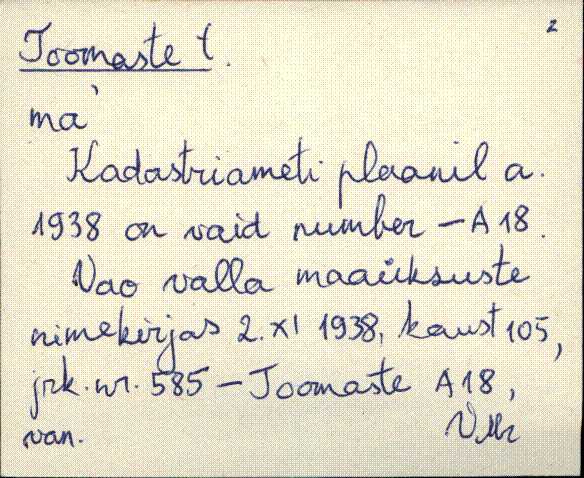 2
Toomaste t.
ma'
Kadastriameti plaanil a.
1938 on vaid number – A 18.
Vao valla maaüksuste
nimekirjas 2. XI 1938, kaust 105,
jrk. nr. 585 – Toomaste A 18,
van.